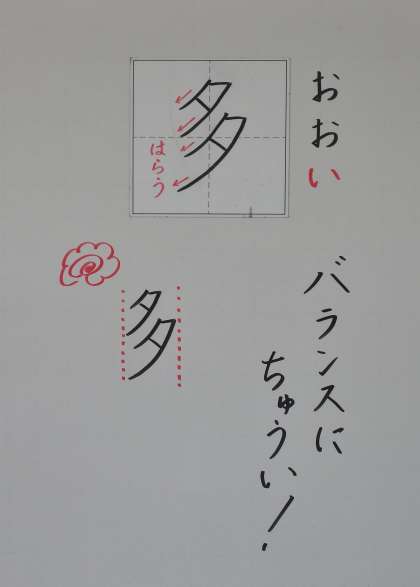 おおい
多
はらう
バランスに
ちゅうい!
多